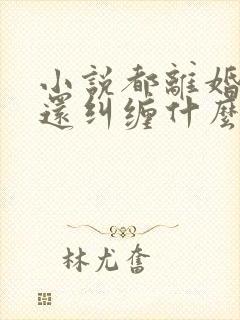 小說都離婚
還糾缠什麼
林尤奮